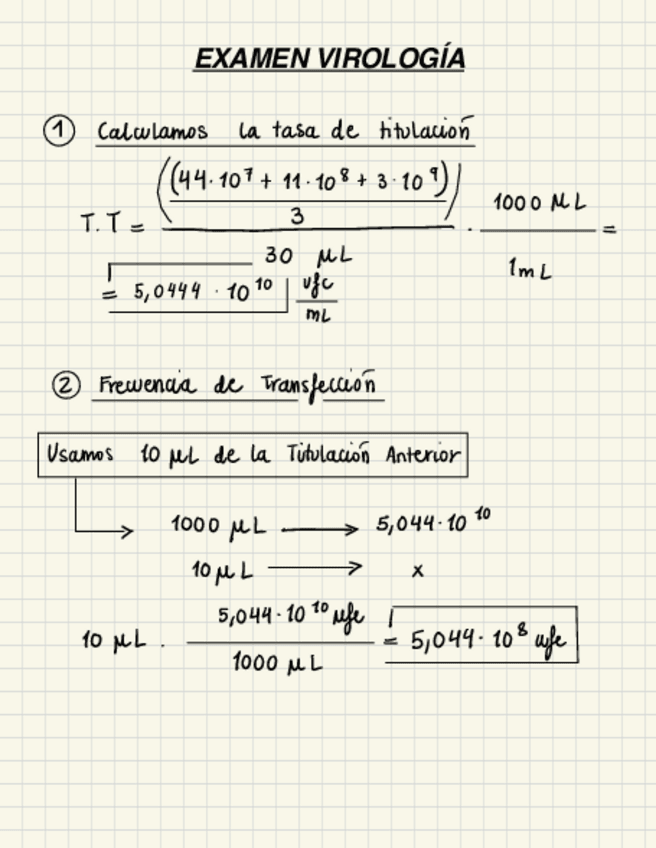 EXAMEN VIROLOGÍA
① Calculamos la tasa de titulación
T.T = ((44·10⁷ + 11·10⁸ + 3·10⁹) / 3) / 30 μL · 1000 μL / 1mL =
= 5,0444 · 10¹⁰ ufc / mL
② Frecuencia de Transfección
Usamos 10 μL de la Titulación Anterior
1000 μL ⟶ 5,044·10¹⁰
10 μL ⟶ x
10 μL · 5,044·10¹⁰ ufc / 1000 μL = 5,044·10⁸ ufc